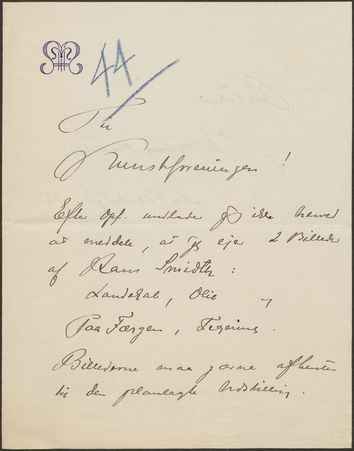 44
Til
Kunstforeningen!
Efter Opf. undlader jeg ikke herved
at meddele, at jeg ejer 2 Billeder
af Hans Smidth:
Landskab, Olie
Paa Færgen, Tegning.
Billederne maa gerne afhentes
til den planlagte Udstilling.